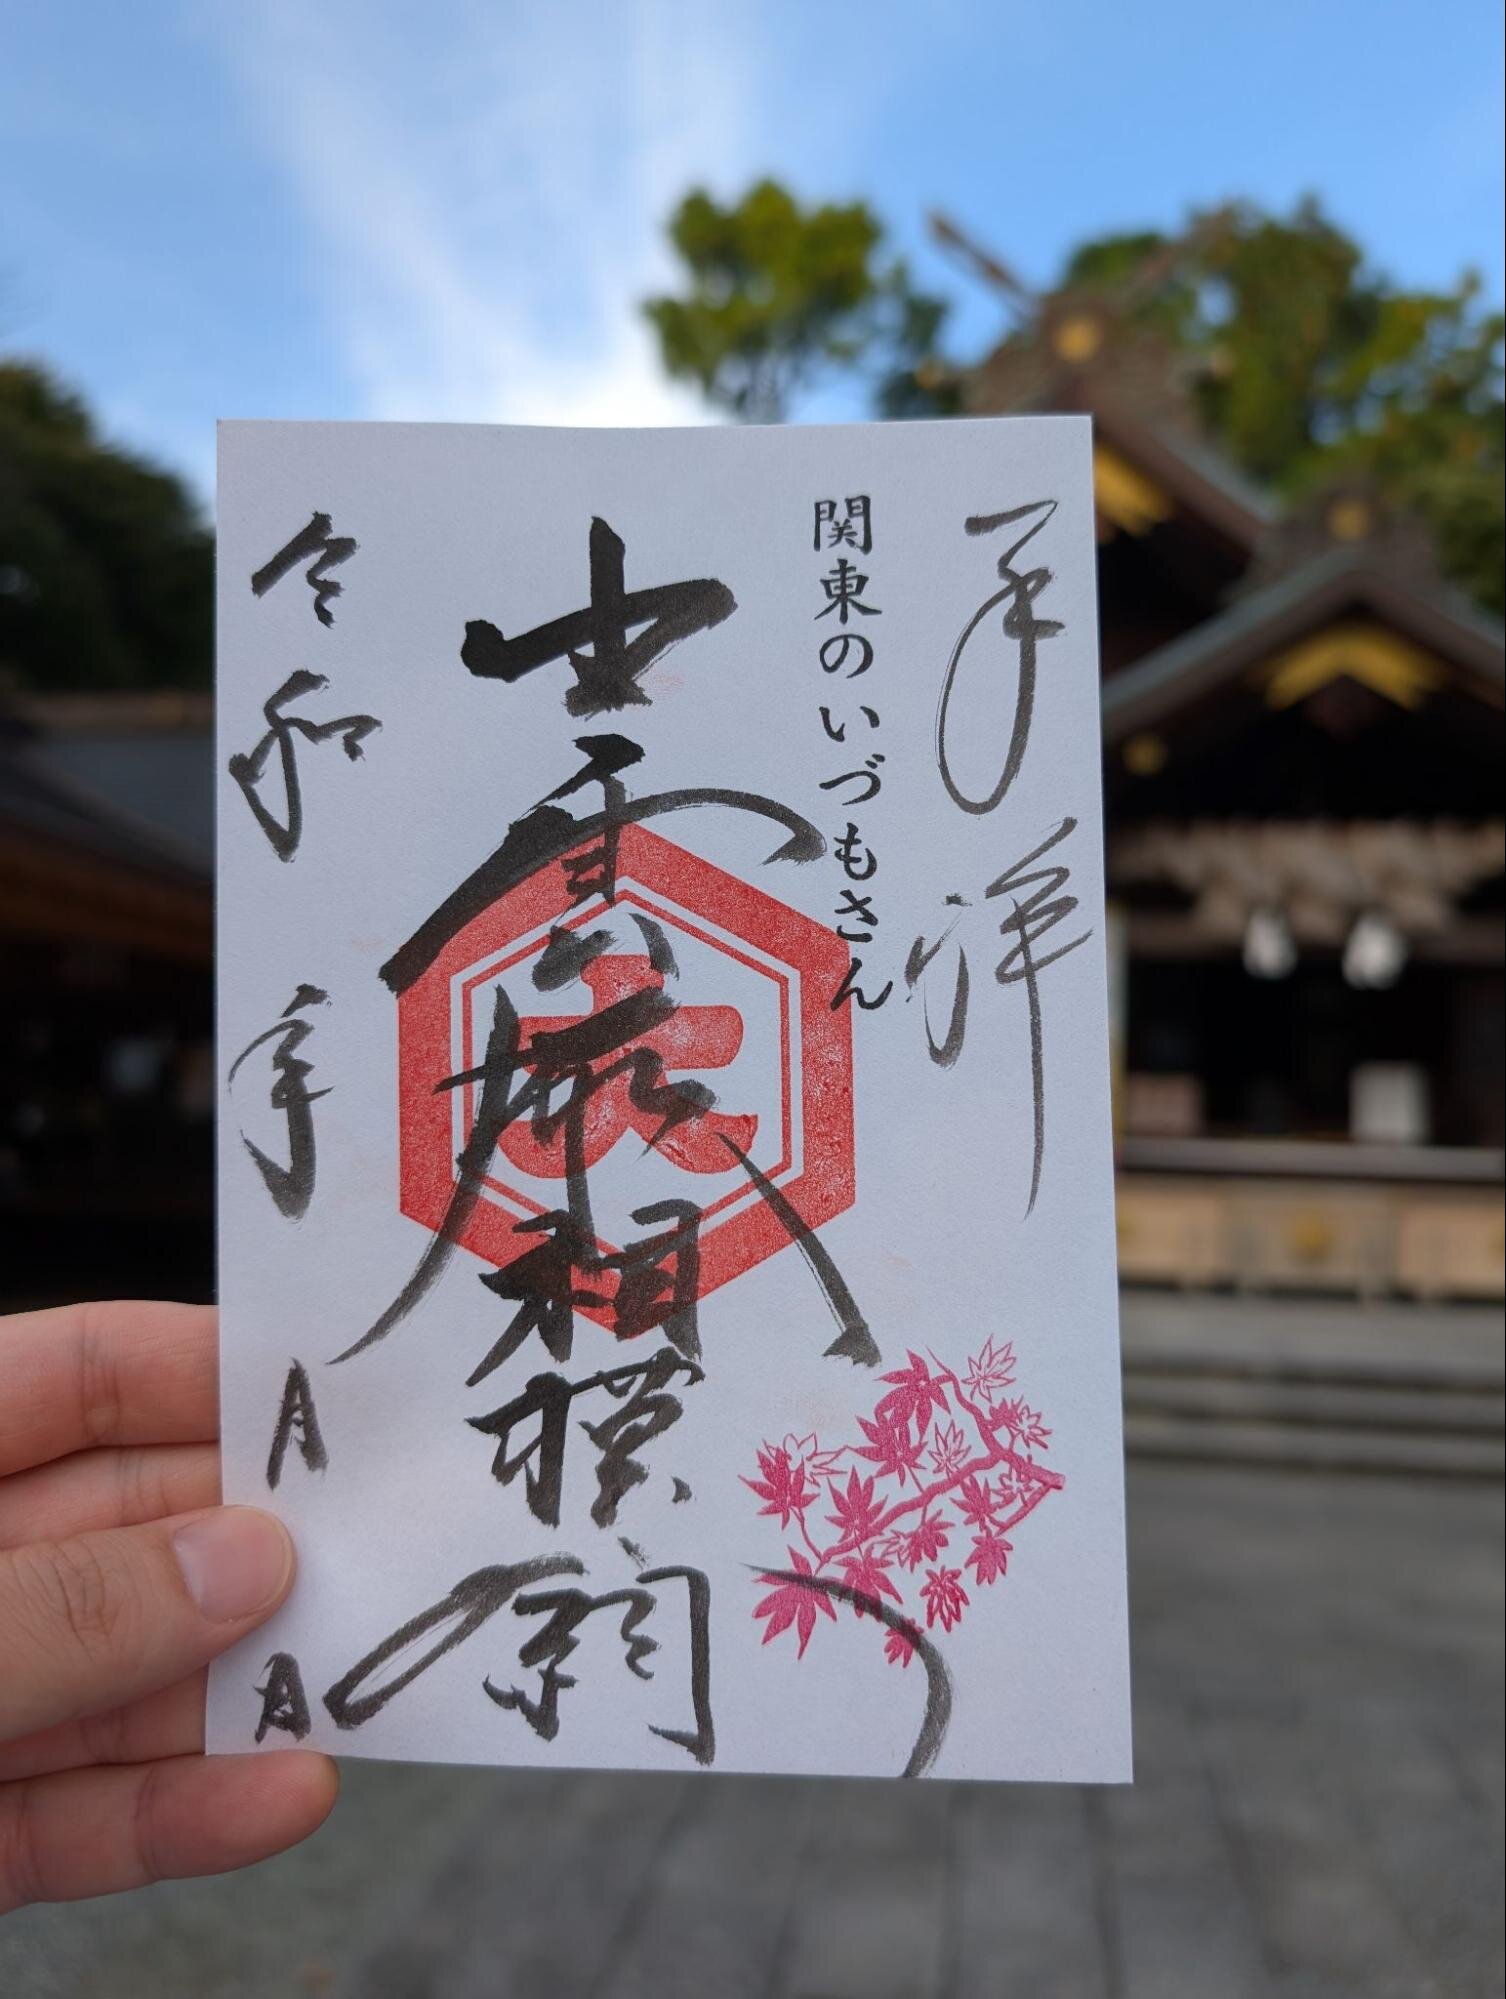 奉拝
関東のいづもさん
出雲大社相模分祠
大
令和 年 月 日